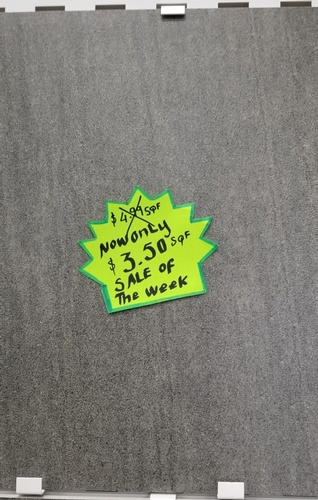 $4.99 SQF
NOW ONLY
$3.50 SQF
SALE OF
The Week